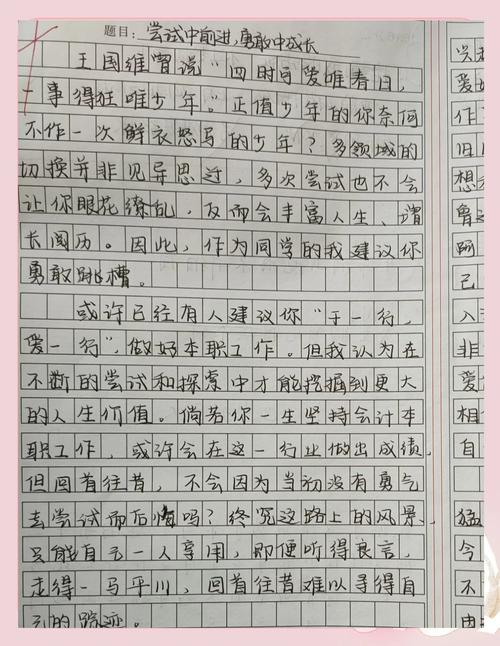 题目：尝试中前进，勇敢中成长
王国维曾说"四时可爱唯春日，
一事得狂唯少年。"正值少年的你奈何
不作一次鲜衣怒马的少年？多领域的
切换并非见异思迁，多次尝试也不会
让你眼花缭乱，反而会丰富人生、增
长阅历。因此，作为同学的我建议你
勇敢跳槽。
或许已经有人建议你"干一行，
爱一行"，做好本职工作。但我认为在
不断的尝试和探索中才能挖掘到更大
的人生价值。倘若你一生坚持会计本
职工作，或许会在这一行业做出成绩，
但回首往昔，不会因为当初没有勇气
去尝试而后悔吗？终究这路上的风景，
只能自己一人享用，即便听得良言，
走得一马平川，回首往昔难以寻得自
己的踪迹。
爱
作
旧
想
鲁
阿
己
入
非
爱
相
自
猛
今
不
由